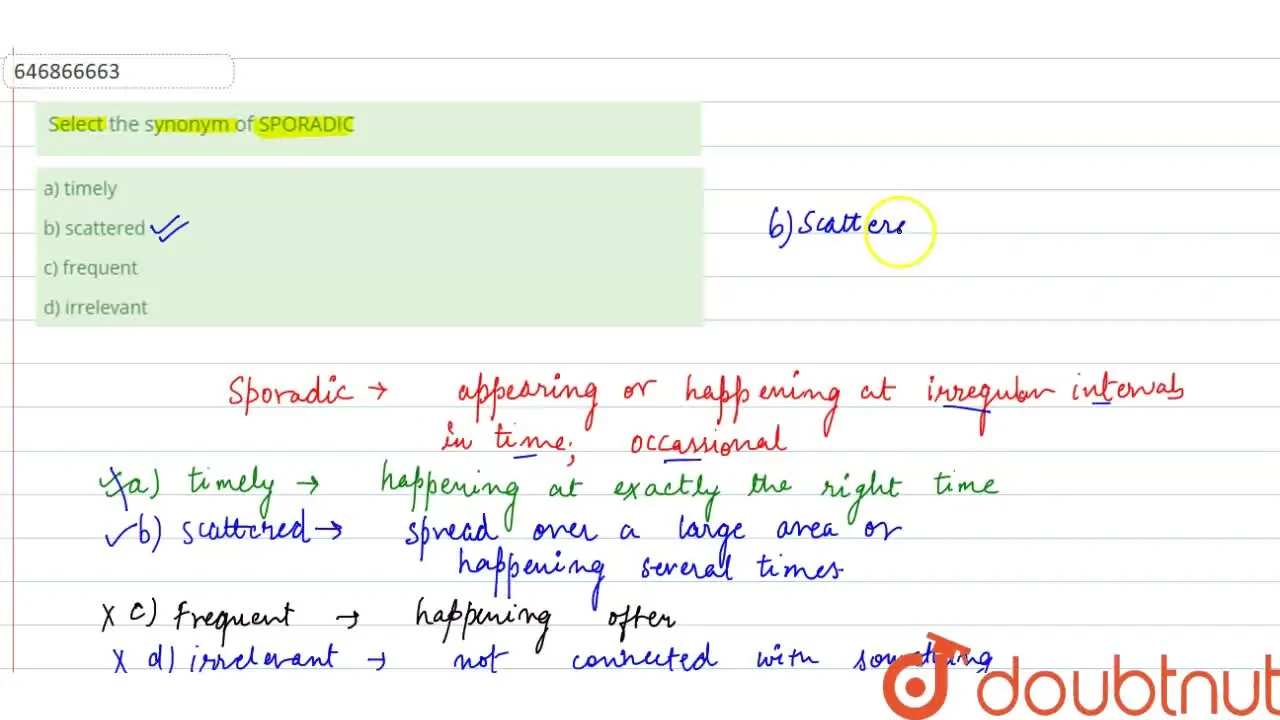 646866663
Select the synonym of SPORADIC
a) timely
b) scattered
c) frequent
d) irrelevant
b) Scattere
Sporadic → appearing or happening at irregular intervals
in time; occassional
a) timely → happening at exactly the right time
b) scattered → spread over a large area or
happening several times
x c) frequent → happening often
x d) irrelevant → not connected with something
doubtnut